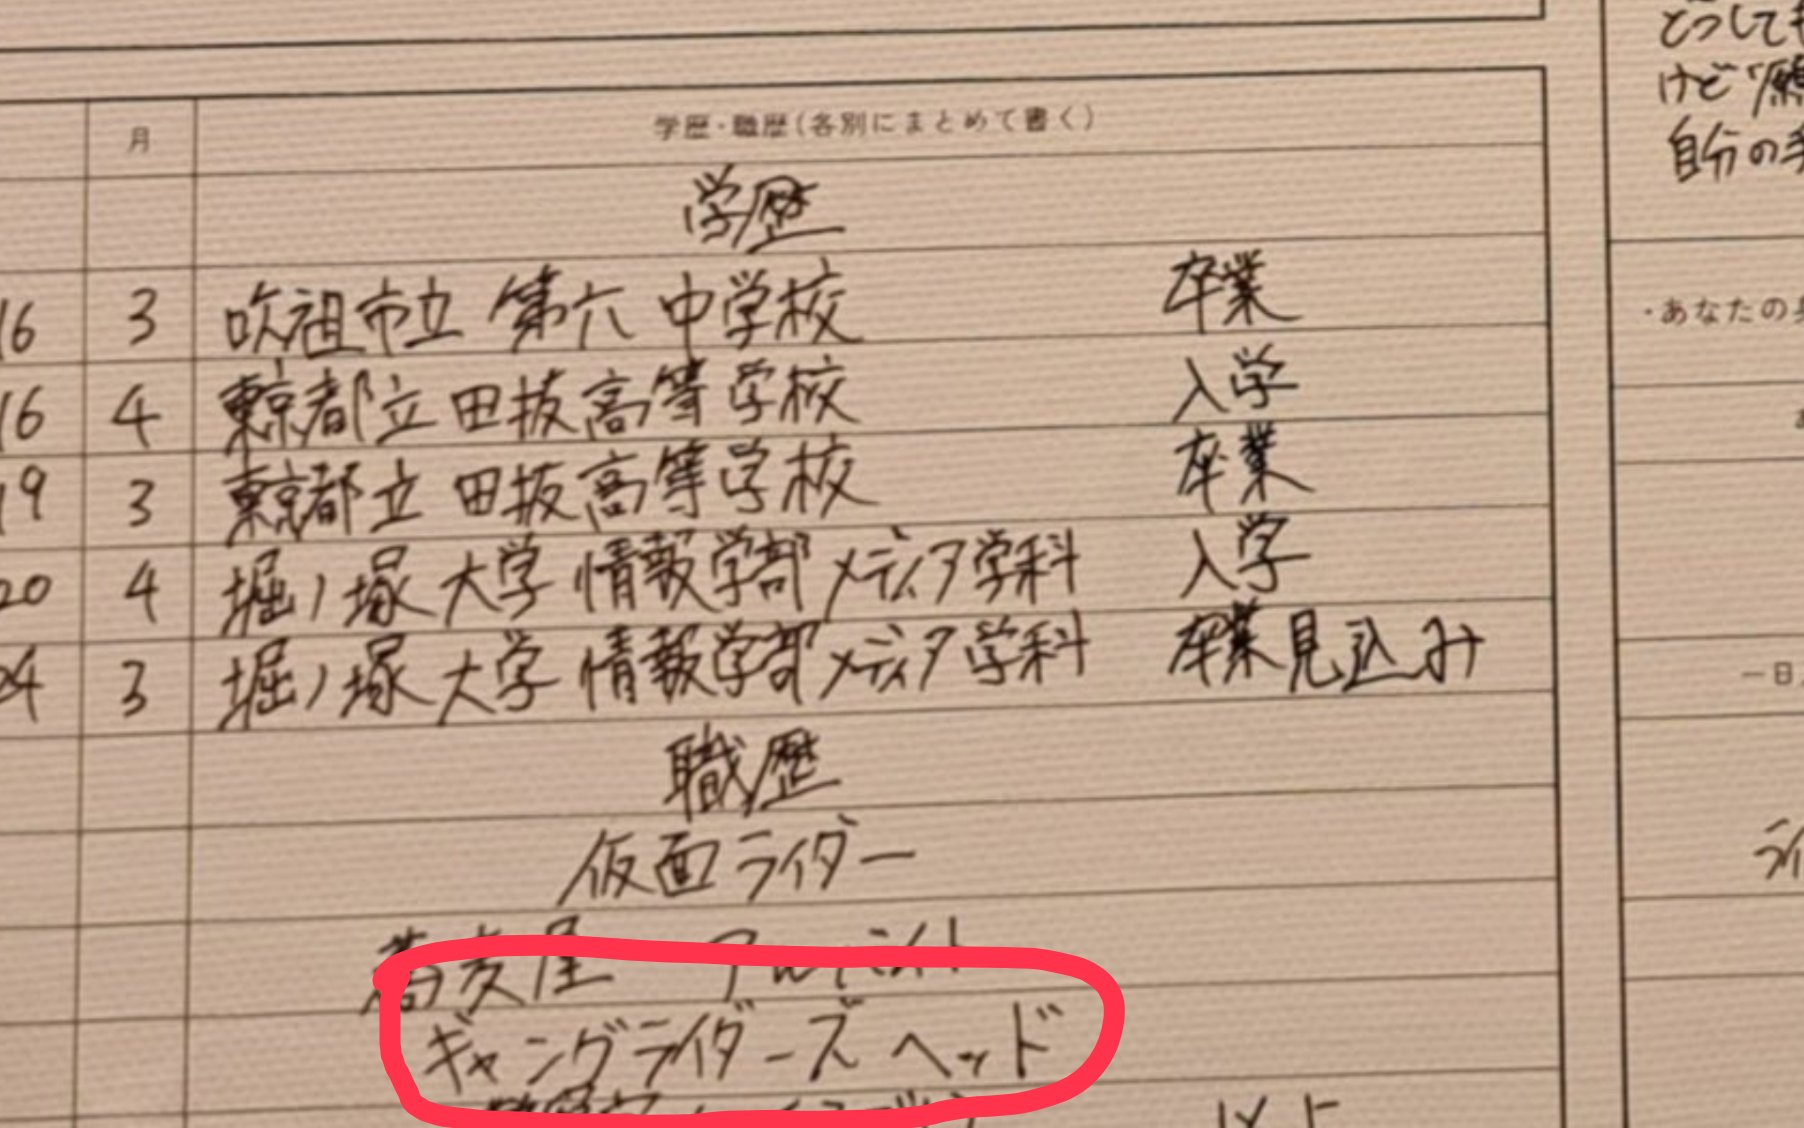 どうしても
けど"願
自分の手
月 学歴・職歴(各別にまとめて書く)
学歴
16 3 吹祖市立 第六 中学校 卒業
16 4 東京都立 田抜高等学校 入学
19 3 東京都立 田抜高等学校 卒業
20 4 堀ノ塚大学 情報学部メディア学科 入学
24 3 堀ノ塚大学 情報学部メディア学科 卒業見込み
職歴
仮面ライダー
蕎麦屋 アルバイト
ギャングライダーズ ヘッド
以上
・あなたの
一日
ライ